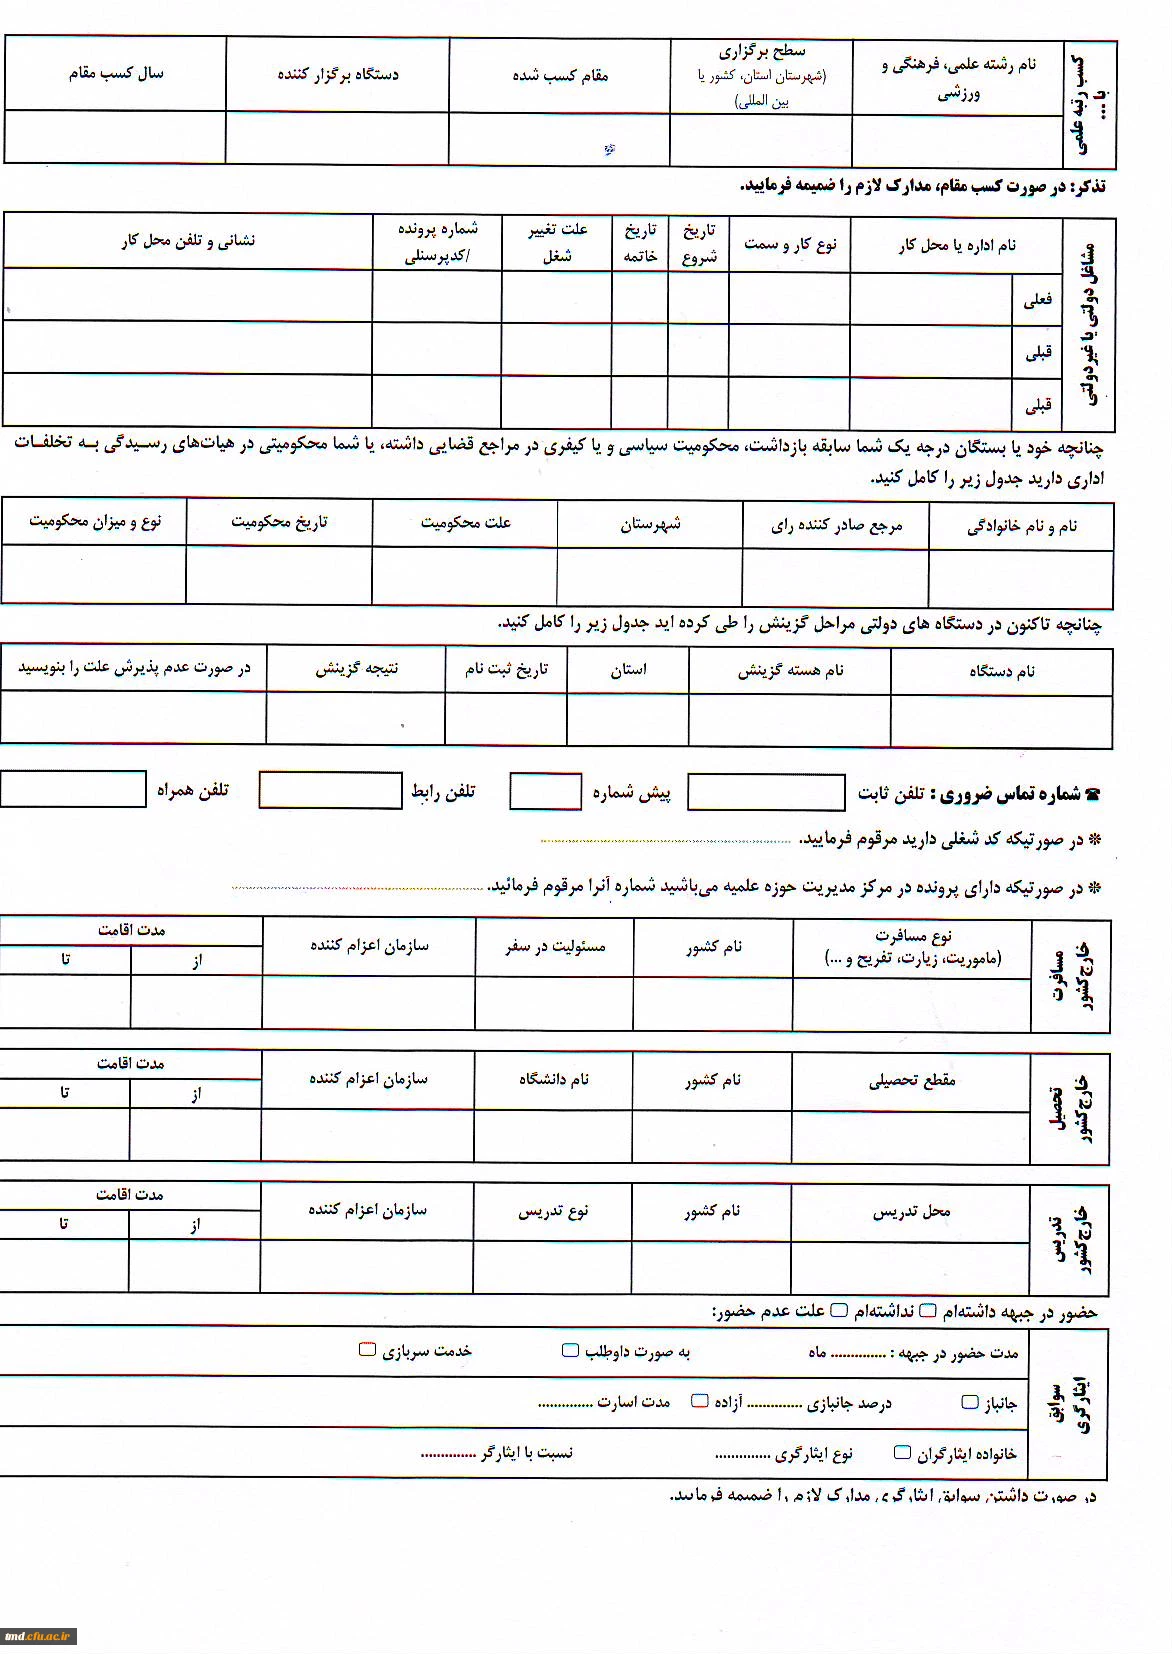 کسب رتبه علمی
یا ...
نام رشته علمی، فرهنگی و
ورزشی
سطح برگزاری
(شهرستان استان، کشور یا
بین المللی)
مقام کسب شده
دستگاه برگزار کننده
سال کسب مقام
تذکر: در صورت کسب مقام، مدارک لازم را ضمیمه فرمایید.
مشاغل دولتی یا غیردولتی
نام اداره یا محل کار
نوع کار و سمت
تاریخ
شروع
تاریخ
خاتمه
علت تغییر
شغل
شماره پرونده
/کدپرسنلی
نشانی و تلفن محل کار
فعلی
قبلی
قبلی
چنانچه خود یا بستگان درجه یک شما سابقه بازداشت، محکومیت سیاسی و یا کیفری در مراجع قضایی داشته، یا شما محکومیتی در هیات‌های رسیدگی به تخلفات
اداری دارید جدول زیر را کامل کنید.
نام و نام خانوادگی
مرجع صادر کننده رای
شهرستان
علت محکومیت
تاریخ محکومیت
نوع و میزان محکومیت
چنانچه تاکنون در دستگاه های دولتی مراحل گزینش را طی کرده اید جدول زیر را کامل کنید.
نام دستگاه
نام هسته گزینش
استان
تاریخ ثبت نام
نتیجه گزینش
در صورت عدم پذیرش علت را بنویسید
☎ شماره تماس ضروری : تلفن ثابت پیش شماره تلفن رابط تلفن همراه
❊ در صورتیکه کد شغلی دارید مرقوم فرمایید. ....................
❊ در صورتیکه دارای پرونده در مرکز مدیریت حوزه علمیه می‌باشید شماره آنرا مرقوم فرمائید. ....................
مسافرت
خارج‌کشور
نوع مسافرت
(ماموریت، زیارت، تفریح و ...)
نام کشور
مسئولیت در سفر
سازمان اعزام کننده
مدت اقامت
از
تا
تحصیل
خارج‌کشور
مقطع تحصیلی
نام کشور
نام دانشگاه
سازمان اعزام کننده
مدت اقامت
از
تا
تدریس
خارج‌کشور
محل تدریس
نام کشور
نوع تدریس
سازمان اعزام کننده
مدت اقامت
از
تا
حضور در جبهه داشته‌ام ▢ نداشته‌ام ▢ علت عدم حضور:
سوابق
ایثارگری
مدت حضور در جبهه : .............. ماه به صورت داوطلب ▢ خدمت سربازی ▢
جانباز ▢ درصد جانبازی .............. آزاده ▢ مدت اسارت ..............
خانواده ایثارگران ▢ نوع ایثارگری .............. نسبت با ایثارگر ..............
در صورت داشتن سوابق ایثارگری مدارک لازم را ضمیمه فرمایید.
tmd.cfu.ac.ir